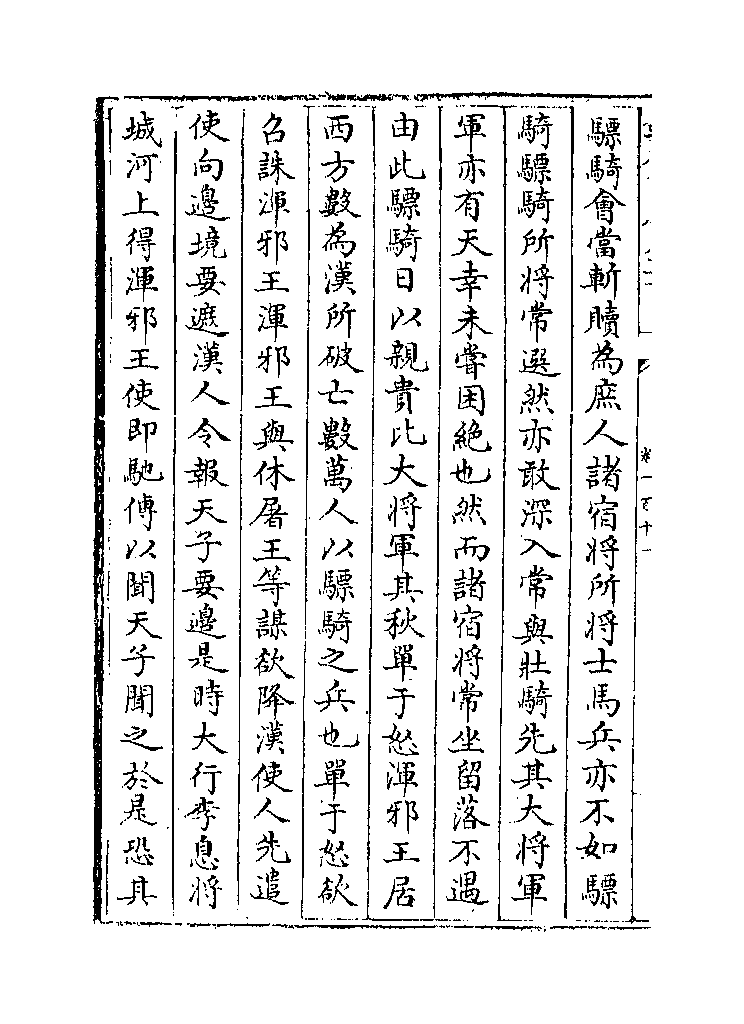 驃騎會當斬贖為庶人諸宿將所將士馬兵亦不如驃
騎驃騎所將常選然亦敢深入常與壯騎先其大將軍
軍亦有天幸未嘗困絶也然而諸宿將常坐留落不遇
由此驃騎日以親貴比大將軍其秋單于怒渾邪王居
西方數為漢所破亡數萬人以驃騎之兵也單于怒欲
召誅渾邪王渾邪王與休屠王等謀欲降漢使人先遣
使向邊境要遮漢人令報天子要邊是時大行李息將
城河上得渾邪王使即馳傳以聞天子聞之於是恐其
卷一百十一